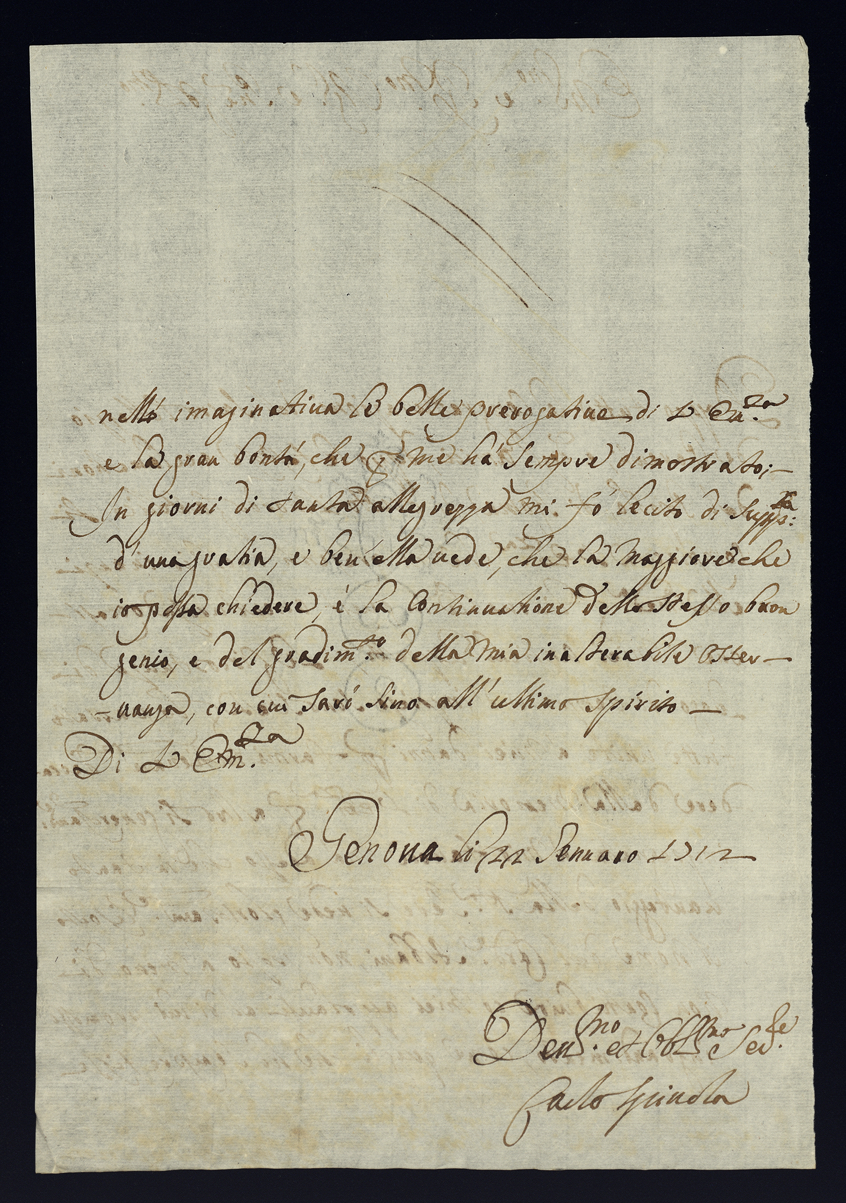 nell' imaginativa le belle prerogative di V Em.za
e la gran bontà, che per me hà sempre dimostrato;
In giorni di tanta allegrezza mi fò lecito di supp.la
d'una gratia, e ben ella vede, che la maggiore che
io possa chiedere, è la continuatione dello stesso buon
genio, e del gradim.to della mia inalterabile osser-
-vanza, con cui sarò sino all'ultimo spirito
Di V Em.za
Genova li 22 Gennaro 1712
Dev.mo et Obbl.mo Ser.re
Carlo Spinola